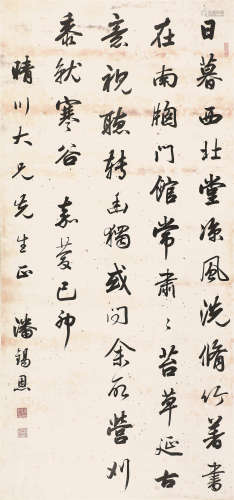 日暮西北堂凉风洗脩竹著书
在南牕门馆常肃〻苔草延古
意视听转幽独或问余所营刈
黍就寒谷 嘉庆己卯
晴川大兄先生正 潘锡恩